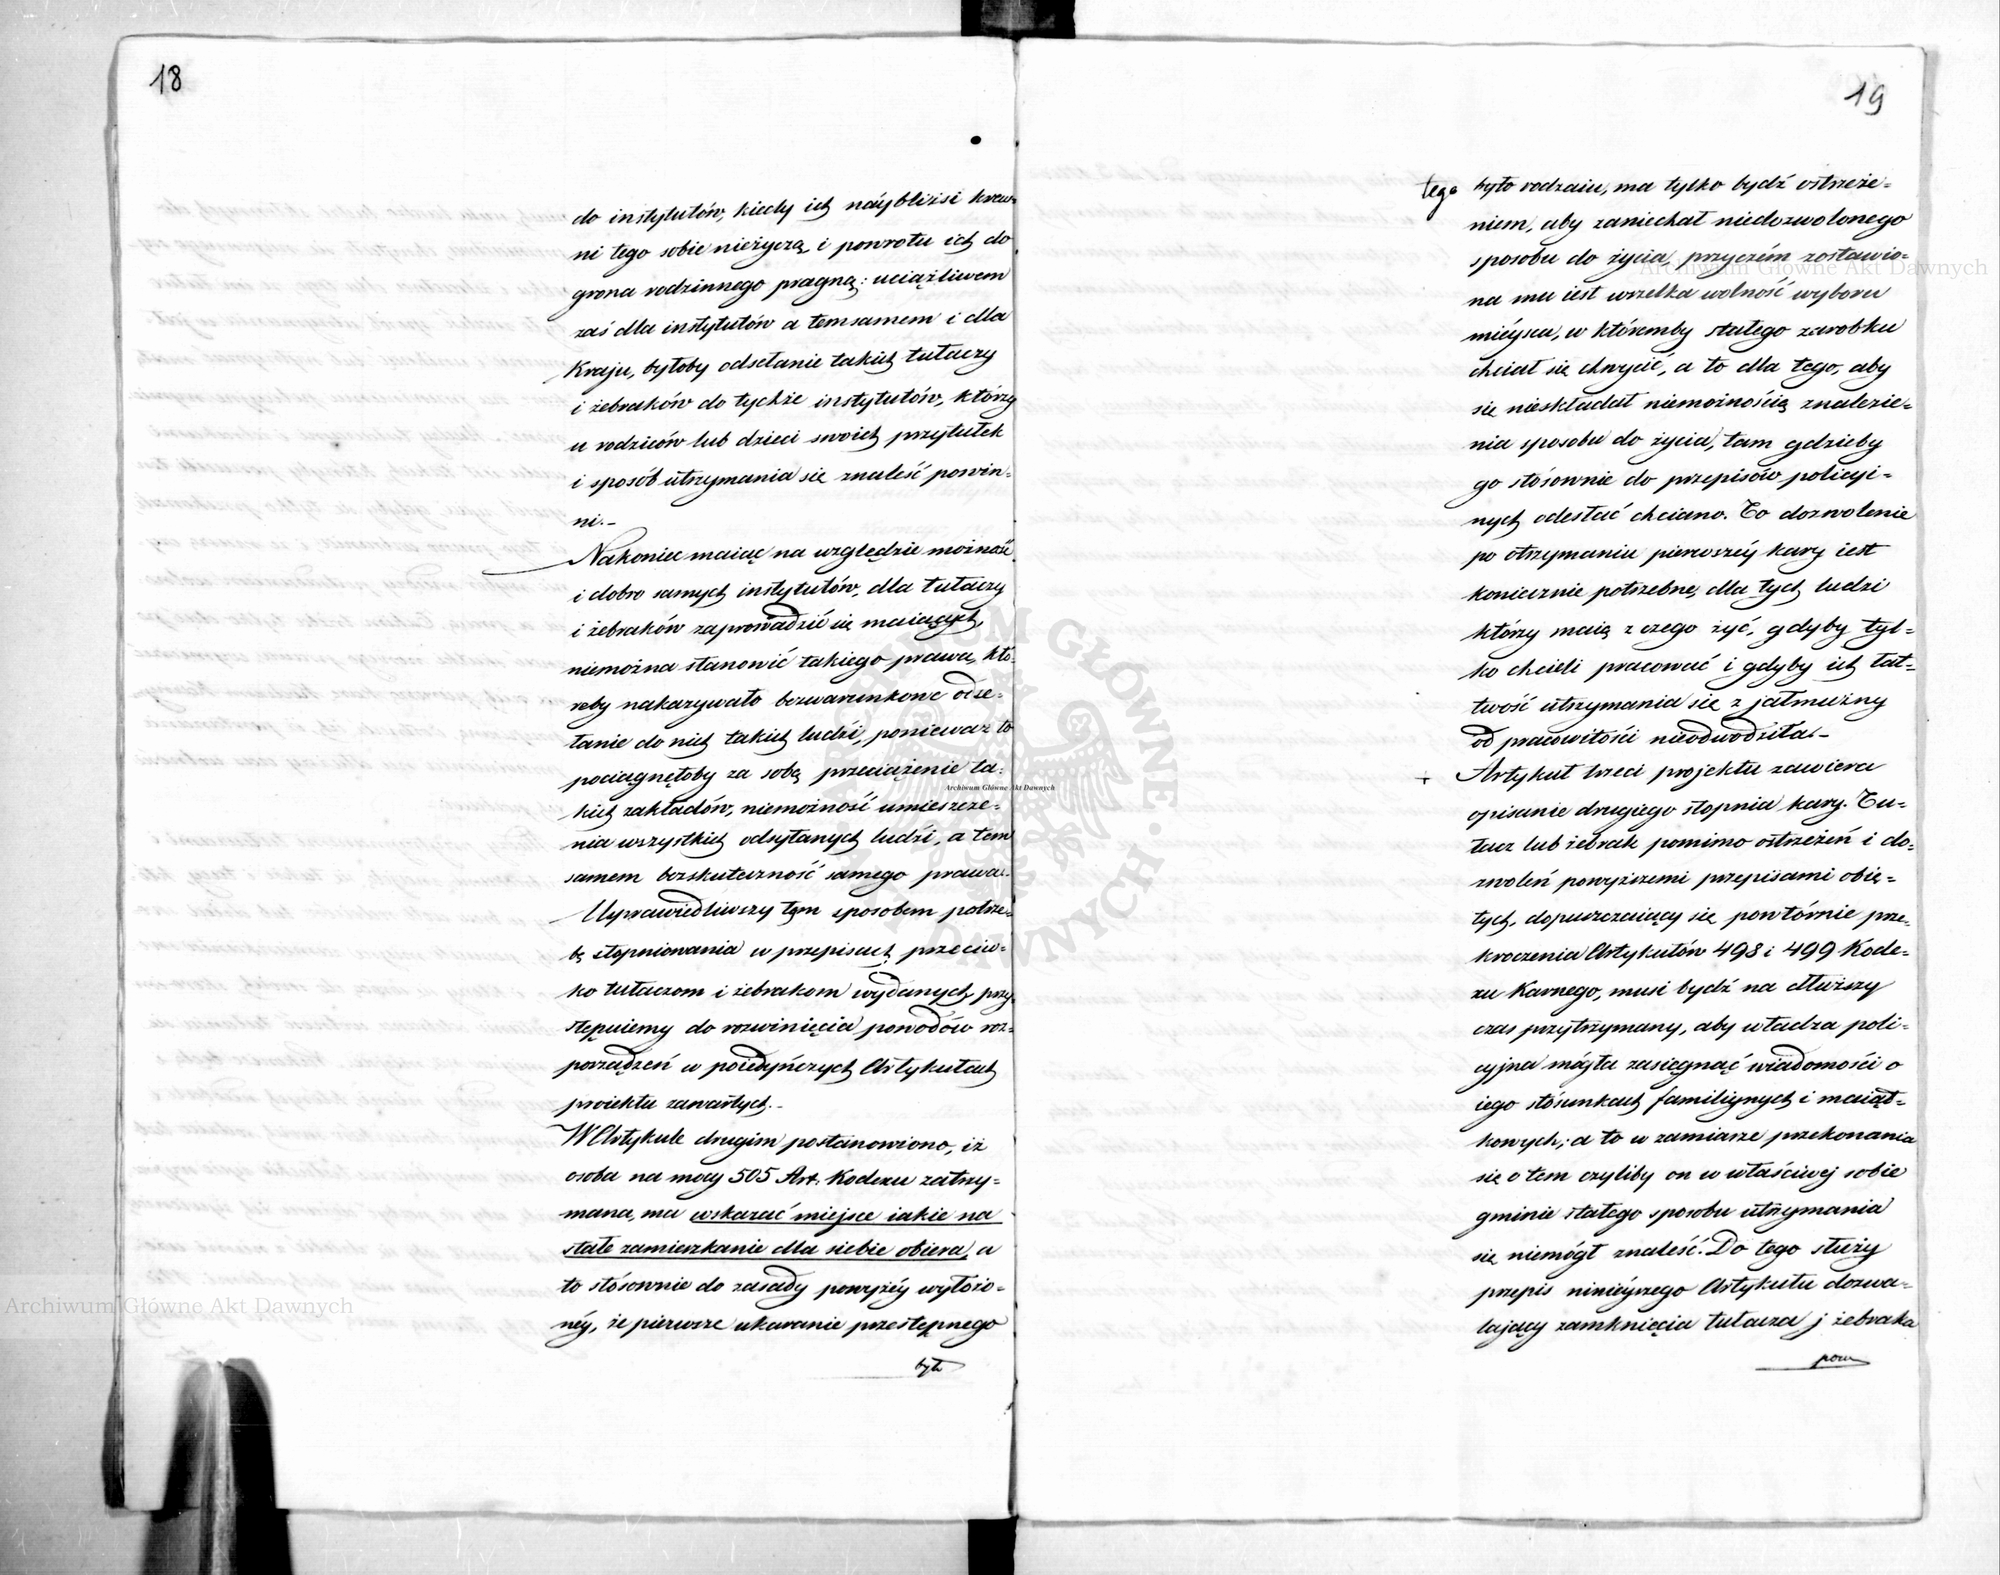 18
do instytutów, kiedy ich náybliżsi krew-
ni tego sobie nieżyczą, i powrotu ich do
grona rodzinnego pragną: uciążliwem
zaś dla instytutów a temsamem i dla
Kraju, byłoby odsełanie takich tułaczy
i żebraków do tychże instytutów, którzy
u rodziców lub dzieci swoich przytułek
i sposób utrzymania się znaleść powin-
ni.-
Nakoniec maiąc na względzie możność
i dobro samych instytutów, dla tułaczy
i żebraków zaprowadzić się maiących,
niemożna stanowić takiego prawa, któ-
reby nakazywało bezwarunkowe odse-
łanie do nich takich ludzi, ponieważ to
pociągnęłoby za sobą przeciążenie ta-
kich zakładów, niemożność umieszcze-
nia wszystkich odsyłanych ludzi, a tem
samem bezskuteczność samego prawa.-
Usprawiedliwszy tym sposobem potrze-
bę stopniowania w przepisach przeciw-
ko tułaczom i żebrakom wydanych, przy-
stępuiemy do rozwinięcia powodów roz-
porządzeń w poiedyńczych Artykułach
proiektu zawartych.-
W Artykule drugim postanowiono, iż
osoba na mocy 505 Art. Kodexu zatrzy-
mana, ma wskazać miejsce iakie na
stałe zamieszkanie dla siebie obiera, a
to stósownie do zasady powyżéy wyłożo-
néy, że pierwsze ukaranie przestępnego
było
19
tego było rodzaiu, ma tylko bydź ostrzeże-
niem, aby zaniechał niedozwolonego
sposobu do życia, przyczém zostawio-
na mu iest wszelka wolność wyboru
miéysca, w którémby stałego zarobku
chciał się chwycić, a to dla tego, aby
się nieskładał niemożnością znalezie-
nia sposobu do życia, tam gdzieby
go stósownie do przepisów policyi-
nych odesłać chciano. To dozwolenie
po otrzymaniu pierwszéy kary iest
koniecznie potrzebne, dla tych ludzi
którzy maią z czego żyć, gdyby tyl-
ko chcieli pracować i gdyby ich łat-
twość utrzymania się z jałmużny
od pracowitości nieodwodziła.-
+ Artykuł trzeci projektu zawiera
opisanie drugiego stopnia kary. Tu-
łacz lub żebrak pomimo ostrzeżeń i do-
zwoleń powyższemi przepisami obię-
tych, dopuszczaiący się powtórnie prze-
kroczenia Artykułów 498 i 499 Kode-
xu Karnego, musi bydź na dłuższy
czas przytrzymany, aby władza poli-
cyjna mógła zasięgnąć wiadomości o
iego stósunkach familijnych i maiąt-
kowych; a to w zamiarze przekonania
się o tem czyliby on w właściwej sobie
gminie stałego sposobu utrzymania
się niemógł znaleść. Do tego służy
przepis niniéyszego Artykułu dozwa-
lający zamknięcia tułacza j żebraka
pow
Archiwum Główne Akt Dawnych
Archiwum Główne Akt Dawnych
Archiwum Główne Akt Dawnych
ARCHIWUM GŁÓWNE · AKT DAWNYCH ·